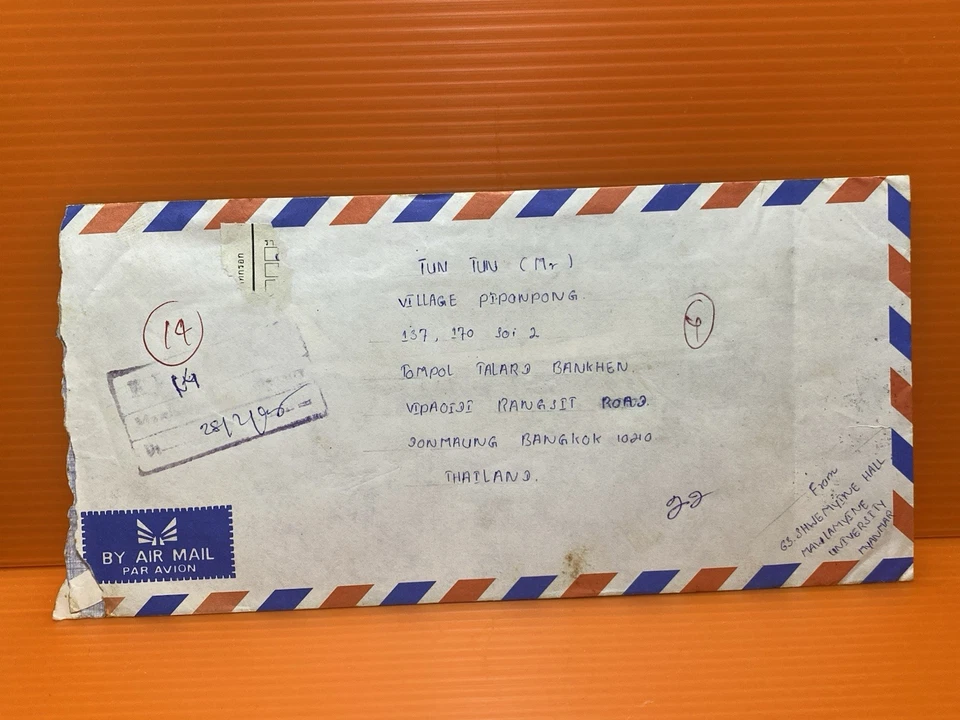 TUN TUN (Mr)
VILLAGE PIPONPONG.
137, 170 Soi 2
TOMPOL TALARD BANKHEN.
VIPAOIDI RANGSIT ROAD.
DONMAUNG BANGKOK 10210
THAILAND.
14
4
28/2/96
BY AIR MAIL
PAR AVION
From
63, SHWE MYINE HALL
MAWLAMYINE
UNIVERSITY
MYANMAR